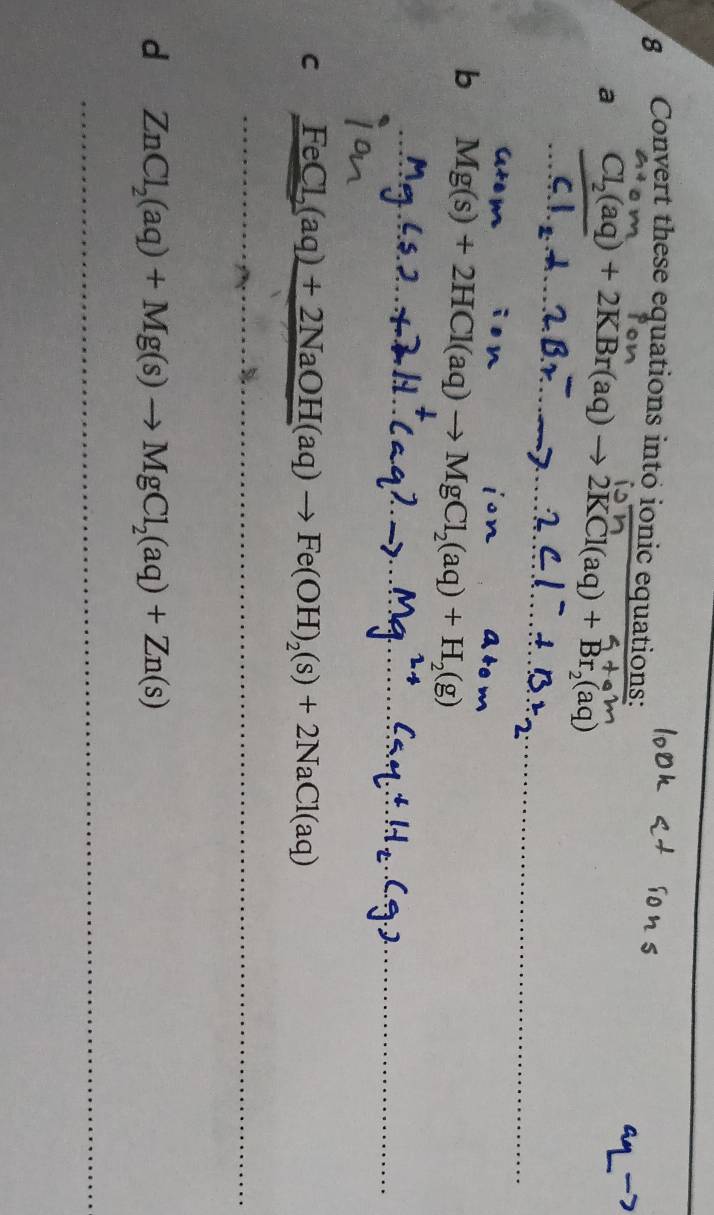 8 Convert these equations into ionic equations: look at ions
atom ion ion atom aq →
a Cl₂(aq) + 2KBr(aq) → 2KCl(aq) + Br₂(aq)
Cl₂ + 2Br⁻ → 2Cl⁻ + Br₂
atom ion ion atom
b Mg(s) + 2HCl(aq) → MgCl₂(aq) + H₂(g)
Mg(s) + 2H⁺(aq) → Mg²⁺(aq + H₂(g)
ion
c FeCl₂(aq) + 2NaOH(aq) → Fe(OH)₂(s) + 2NaCl(aq)
d ZnCl₂(aq) + Mg(s) → MgCl₂(aq) + Zn(s)